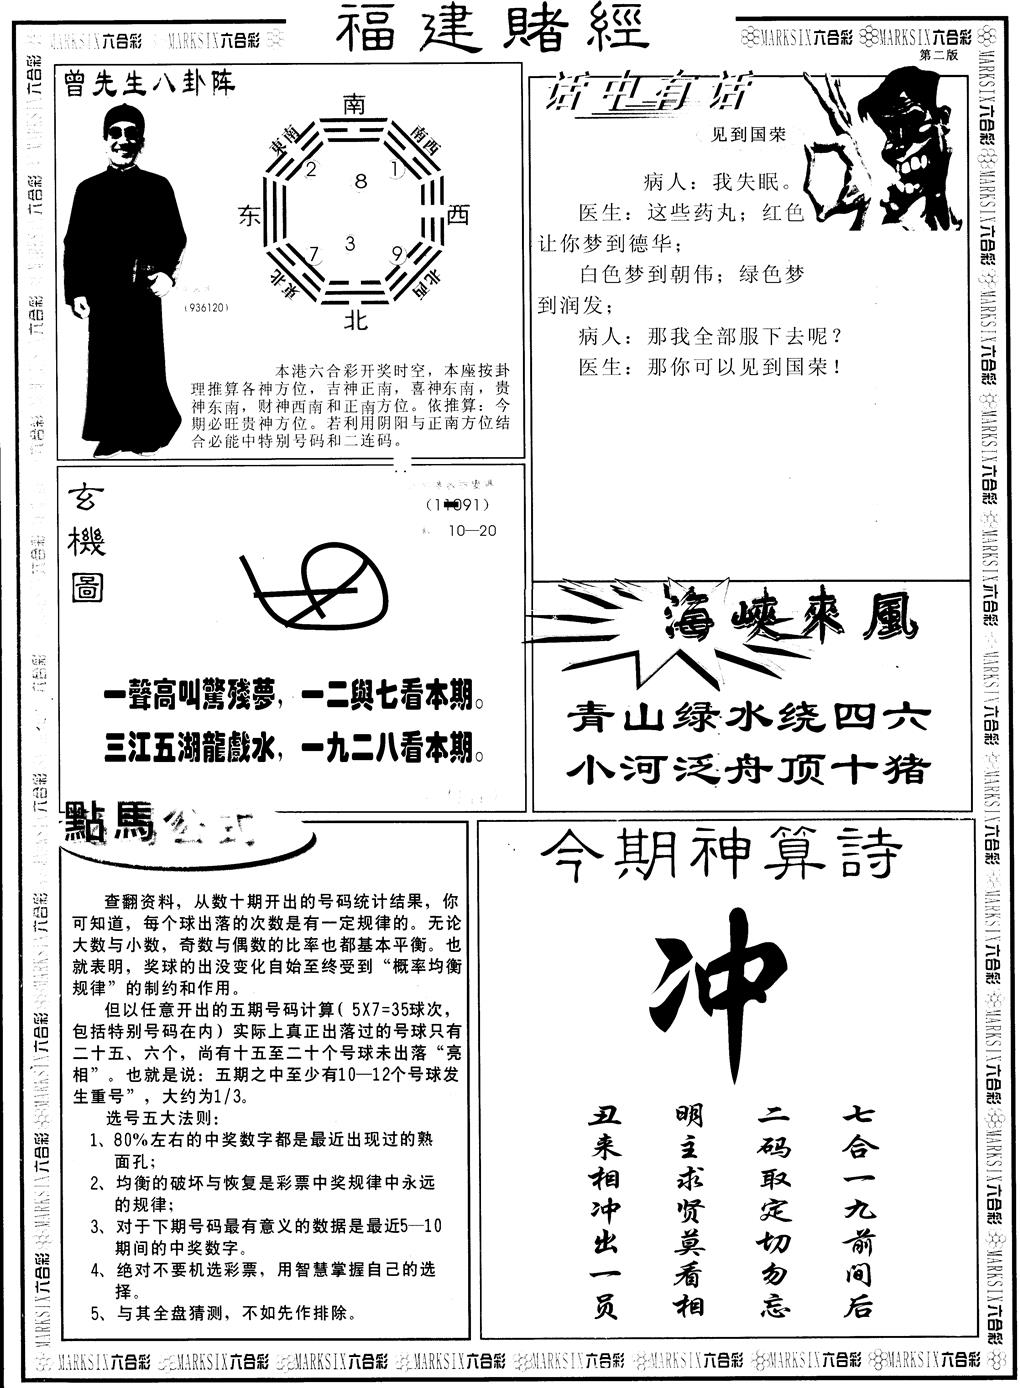 福建賭經
MARKSIX六合彩 MARKSIX六合彩
MARKSIX六合彩 MARKSIX六合彩
第二版
曾先生八卦阵
南
東南
南西
2
1
8
东
西
7
3
9
東北
北西
北
(936120)
本港六合彩开奖时空，本座按卦
理推算各神方位，吉神正南，喜神东南，贵
神东南，财神西南和正南方位。依推算：今
期必旺贵神方位。若利用阴阳与正南方位结
合必能中特别号码和二连码。
话中有话
见到国荣
病人：我失眠。
医生：这些药丸；红色
让你梦到德华；
白色梦到朝伟；绿色梦
到润发；
病人：那我全部服下去呢？
医生：那你可以见到国荣！
玄機圖
10—20
一聲高叫驚殘夢，一二與七看本期。
三江五湖龍戲水，一九二八看本期。
海峽來風
青山绿水绕四六
小河泛舟顶十猪
點馬公式
查翻资料，从数十期开出的号码统计结果，你
可知道，每个球出落的次数是有一定规律的。无论
大数与小数，奇数与偶数的比率也都基本平衡。也
就表明，奖球的出没变化自始至终受到“概率均衡
规律”的制约和作用。
但以任意开出的五期号码计算( 5X7=35球次，
包括特别号码在内) 实际上真正出落过的号球只有
二十五、六个，尚有十五至二十个号球未出落“亮
相”。也就是说：五期之中至少有10—12个号球发
生重号”，大约为1/3。
选号五大法则：
1、80%左右的中奖数字都是最近出现过的熟
面孔；
2、均衡的破坏与恢复是彩票中奖规律中永远
的规律；
3、对于下期号码最有意义的数据是最近5—10
期间的中奖数字。
4、绝对不要机选彩票，用智慧掌握自己的选
择。
5、与其全盘猜测，不如先作排除。
今期神算詩
冲
七合一九前间后
二码取定切勿忘
明主求贤莫看相
丑来相冲出一员
MARKSIX六合彩 MARKSIX六合彩 MARKSIX六合彩 MARKSIX六合彩 MARKSIX六合彩 MARKSIX六合彩 MARKSIX六合彩 MARKSIX六合彩